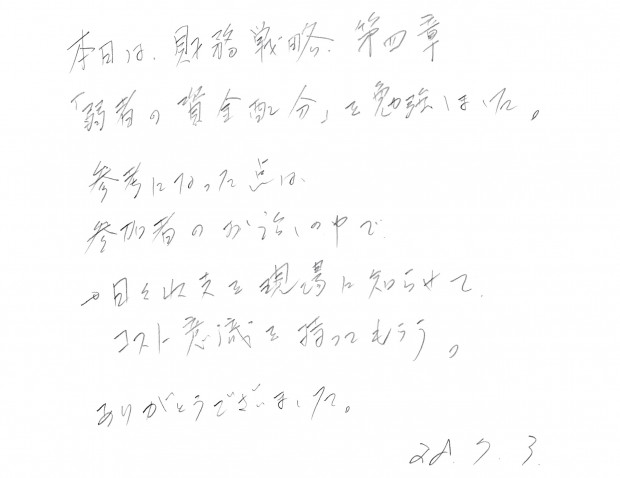 本日は、財務戦略、第四章
「弱者の資金配分」を勉強しました。
参考になった点は、
参加者のお話しの中で
→日々収支を現場に知らせて、
コスト意識を持ってもらう。
ありがとうございました。
28.7.3.